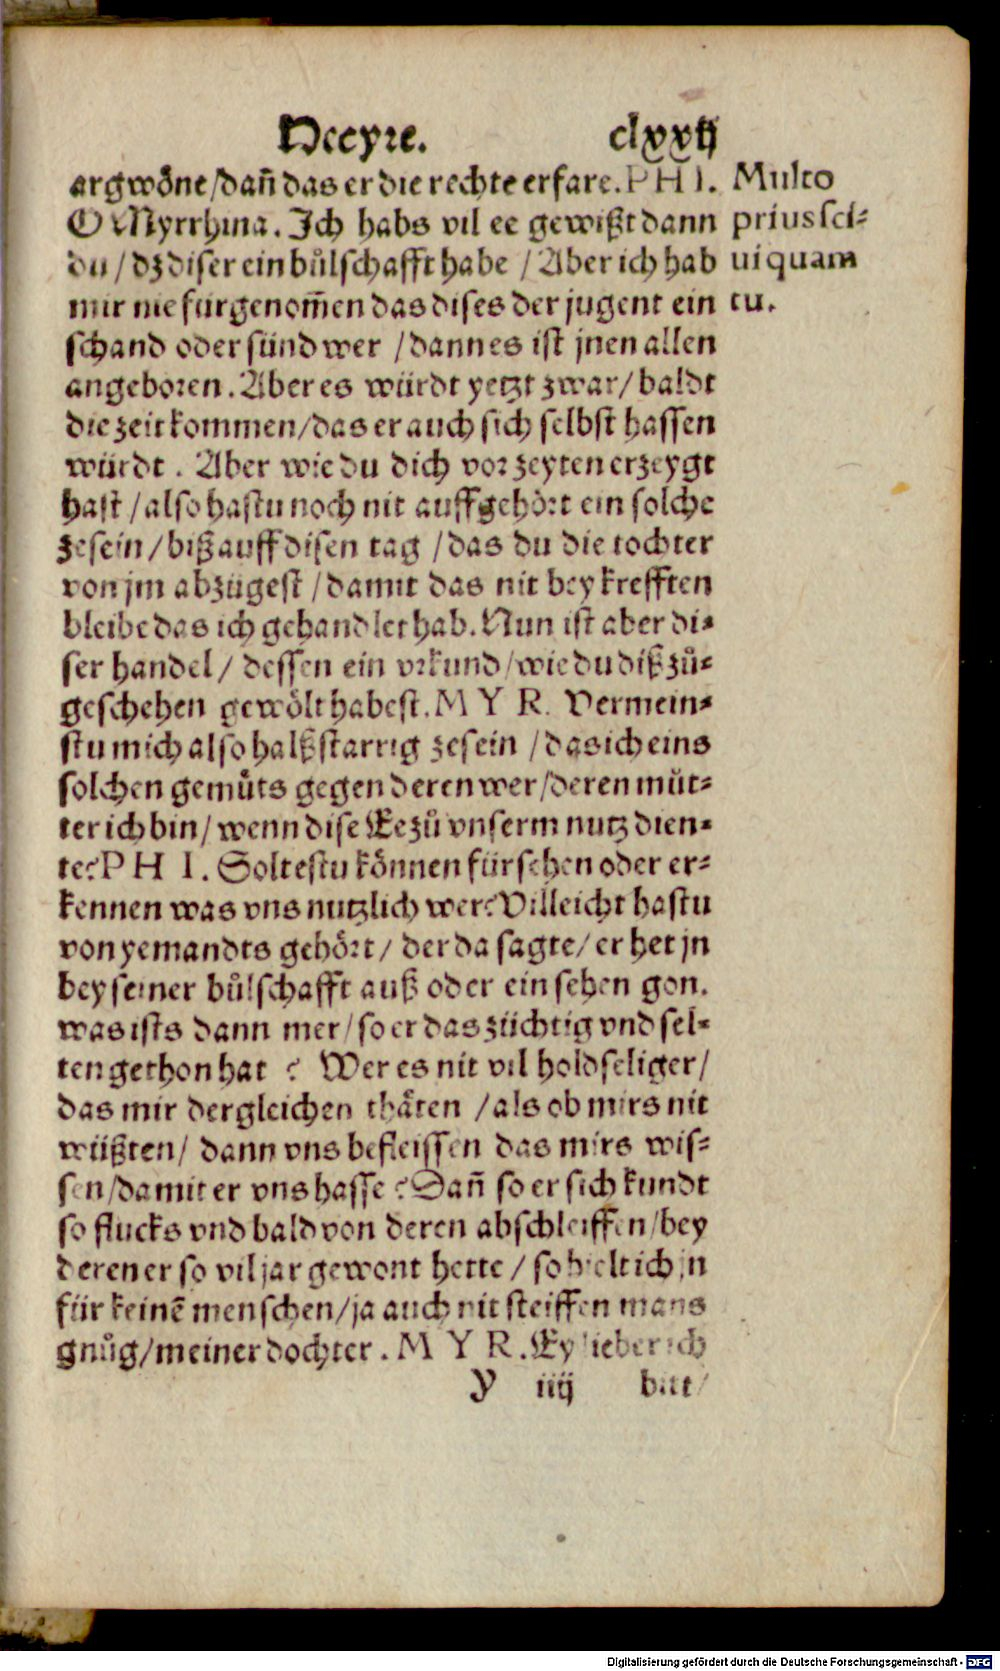 Hecyre. clxxij
argwöne/dañ das er die rechte erfare. PHI.
O Myrrhina. Ich habs vil ee gewißt dann
du/dz diser ein bůlschafft habe/Aber ich hab
mir nie fürgenom̃en das dises der jugent ein
schand oder sünd wer/dann es ist jnen allen
angeboren. Aber es würdt yetzt zwar/baldt
die zeit kommen/das er auch sich selbst hassen
würdt. Aber wie du dich vor zeyten erzeygt
hast/also hastu noch nit auffgehört ein solche
ze sein/biß auff disen tag/das du die tochter
von jm abzügest/damit das nit bey krefften
bleibe das ich gehandlet hab. Nun ist aber di-
ser handel/dessen ein vrkund/wie du diß zů-
geschehen gewölt habest. MYR. Vermein-
stu mich also halßstarrig ze sein/das ich eins
solchen gemüts gegen deren wer/deren můt-
ter ich bin/wenn dise Ee zů vnserm nutz dien-
te? PHI. Soltestu können fürsehen oder er-
kennen was vns nutzlich wer? Villeicht hastu
von yemandts gehört/der da sagte/er het jn
bey seiner bůlschafft auß oder ein sehen gon.
was ists dann mer/so er das züchtig vnd sel-
ten gethon hat? Wer es nit vil holdseliger/
das mir dergleichen thäten/als ob mirs nit
wüßten/dann vns befleissen das mirs wis-
sen/damit er vns hasse? Dañ so er sich kundt
so flucks vnd bald von deren abschleiffen/bey
deren er so vil jar gewont hette/so hielt ich jn
für keinē menschen/ja auch nit steiffen mans
gnůg/meiner dochter. MYR. Ey lieber ich
Y iiij bitt/
Multo
prius sci-
ui quam
tu.
Digitalisierung gefördert durch die Deutsche Forschungsgemeinschaft - DFG